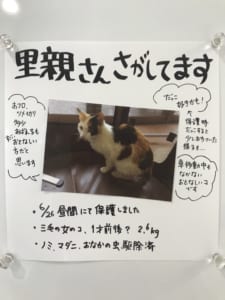 里親さんさがしてます
おフロ、
ツメ切り
多少
おとなしい
方だと
思います
だっこ
好きかも!
保護時
だっこすると
少しおちついた
様子…
車移動中も
なかない
おとなしいコ
です
・6/26 昼間にて保護しました
・三毛の女のコ、1才前後? 2.6kg
・ノミ、マダニ、おなかの虫駆除済